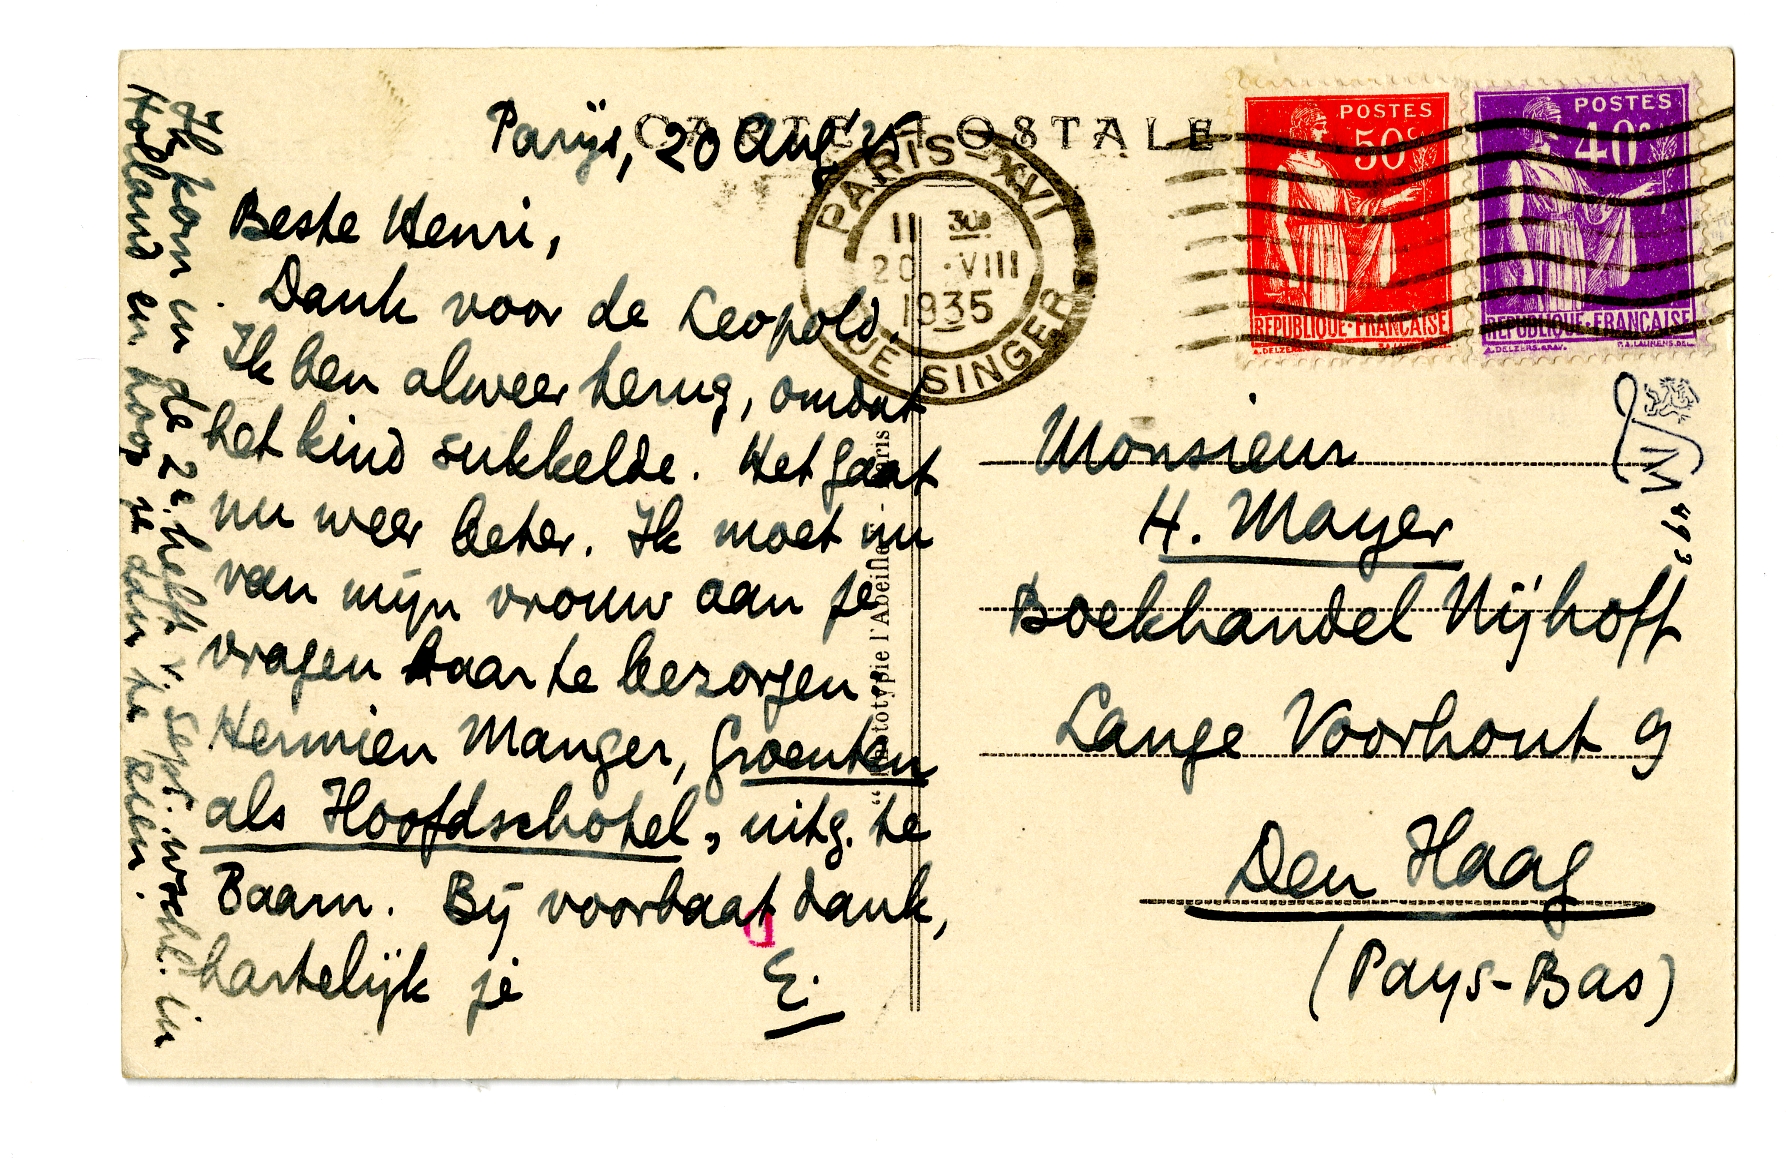 CARTE POSTALE
Parijs, 20 Aug '35
Beste Henri,
Dank voor de Leopold.
Ik ben alweer terug, omdat
het kind sukkelde. Het gaat
nu weer beter. Ik moet nu
van mijn vrouw aan je
vragen haar te bezorgen:
Hermien Manger, Groenten
als Hoofdschotel, uitg. te
Baarn. Bij voorbaat dank,
hartelijk je
E.
Ik kom in de 2e helft v. Sept. wschl. in
Holland en hoop je dan te zien.
D
PARIS-XVI
11 30
20 · VIII
1935
RUE SINGER
POSTES
50c
REPUBLIQUE·FRANÇAISE
POSTES
40c
REPUBLIQUE·FRANÇAISE
A. DELZERS. GRAV.
P. A. LAURENS. DEL.
l'Abeille" - Paris
Monsieur
H. Mayer
Boekhandel Nijhoff
Lange Voorhout 9
Den Haag
(Pays-Bas)
LM